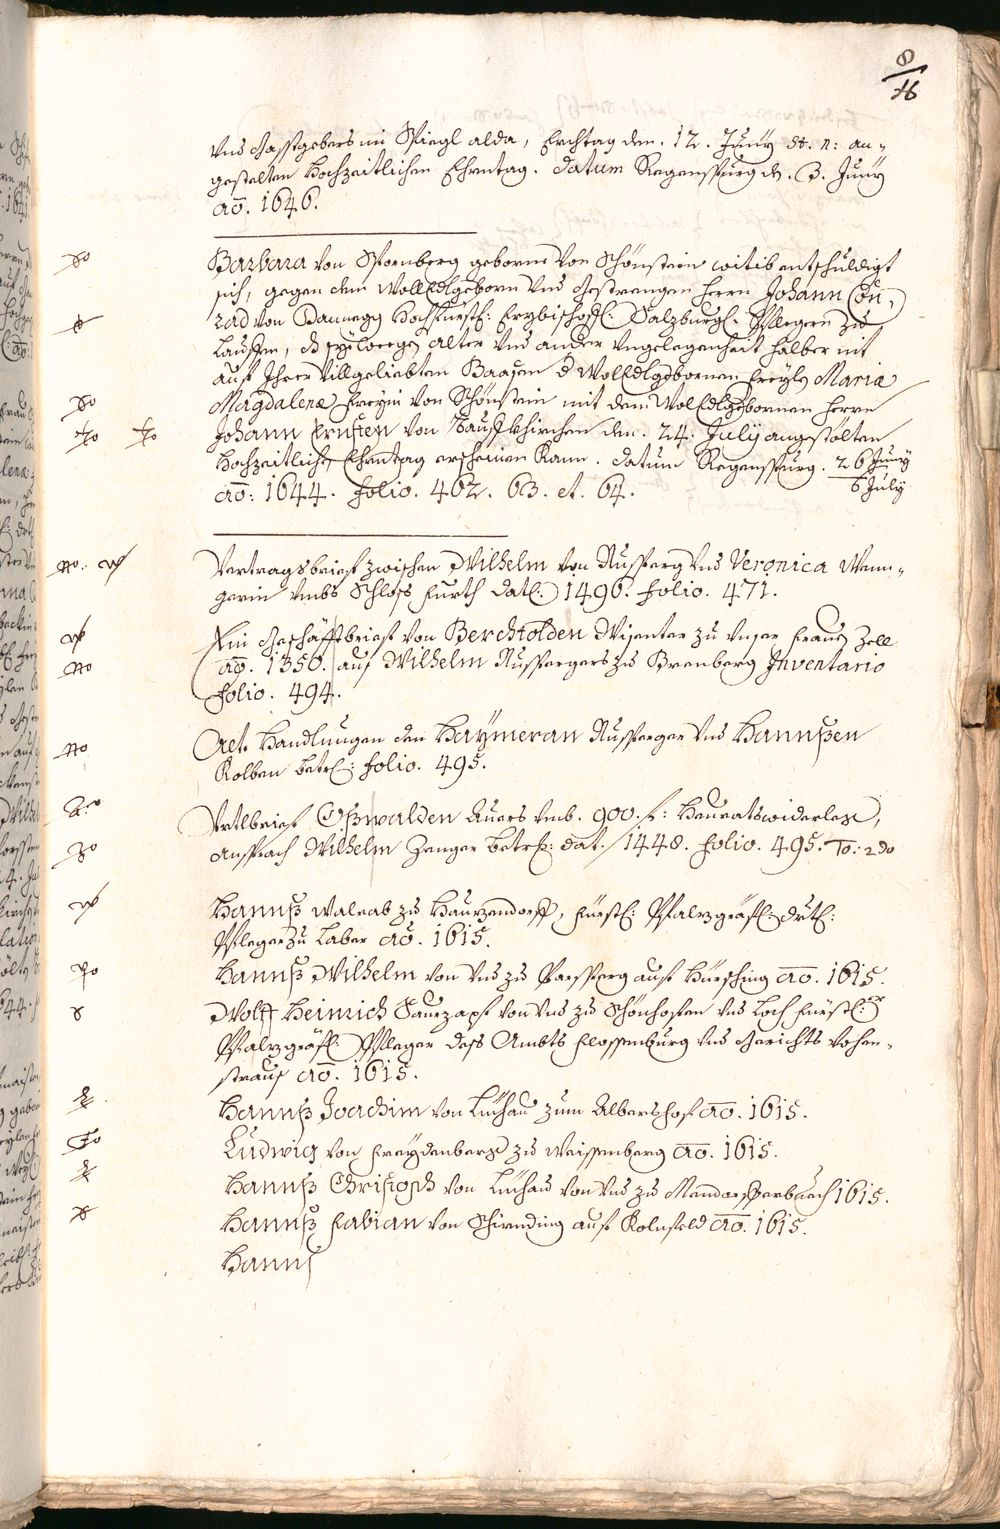 8
16
vnd Gasstgebers im Spiegl alda, Erchtag den. 12. Juny st. n: an-
gestelten Hochzeitlichen Ehrntag. Datum Regenspurg d. 3. Juny
aõ. 1646.
Barbara von Stornberg geborne von Schönstein witib entschuldigt
sich, gegen dem WollEdlgeborn vnd Gestrengen Herrn Johann Cun-
rad von Baunegg Hochfürstl: Erzbischofl: Salzburgl: Pflegern zu
Lauffen, alter vnd ander vngelegenheit halber nit
auf Ihrer villgeliebten Baasen d WolEdlgebornen Freyle Maria
Magdalena Freyin von Schönstein mit dem WolEdlgebornen Herrn
Johann Ernsten von Tauffkhirchen den. 24. July angestölten
Hochzeitlichen Ehrntag erscheinen kann. Datum Regenspurg. 26 Juny
6 July
aõ: 1644. folio. 462. 63. et. 64.
Vertragsbrief zwischen Wilhelm von Nussperg vnd Veronica Wenn-
gerin vmbs Schloss Furth datl. 1496. folio. 471.
Ein Geschäfftbrief von Berchtolden Wisenter zu vnser Frauen Zell
aõ. 1350. auf Wilhelm Nusspergers zu Brenberg Inventario
folio. 494.
Act. Handlungen den Haymeran Nussperger vnd Hannßen
Kolben betrl: folio. 495.
Vrtlbrief Oßwalden Auers vmb. 900. f: Heuratswiderlag,
ansprach Wilhelm Zenger betrl: dat. 1448. folio. 495. To: 2do
Hannß Walrab zu Hauzendorff, Fürstl: Pfalzgräfl:
Pfleger zu Laber aõ. 1615.
Hannß Wilhelm von vnd zu Parsperg auf Hürsching aõ. 1615.
Wolff Heinrich Saurzapf von vnd zu Schönhofen vnd Loch Fürstl:
Pfalzgräfl: Pfleger dess Ambts Flossenburg vnd Gerichts Vohen-
strauß aõ. 1615.
Hannß Joachim von Lüchau zum Albershof aõ. 1615.
Ludwig von Freydenberg zu Weissenberg aõ. 1615.
Hannß Christoph von Lüchau von vnd zu 1615.
Hannß Fabian von Schirnding auf Rolnfeld aõ. 1615.
Hannß